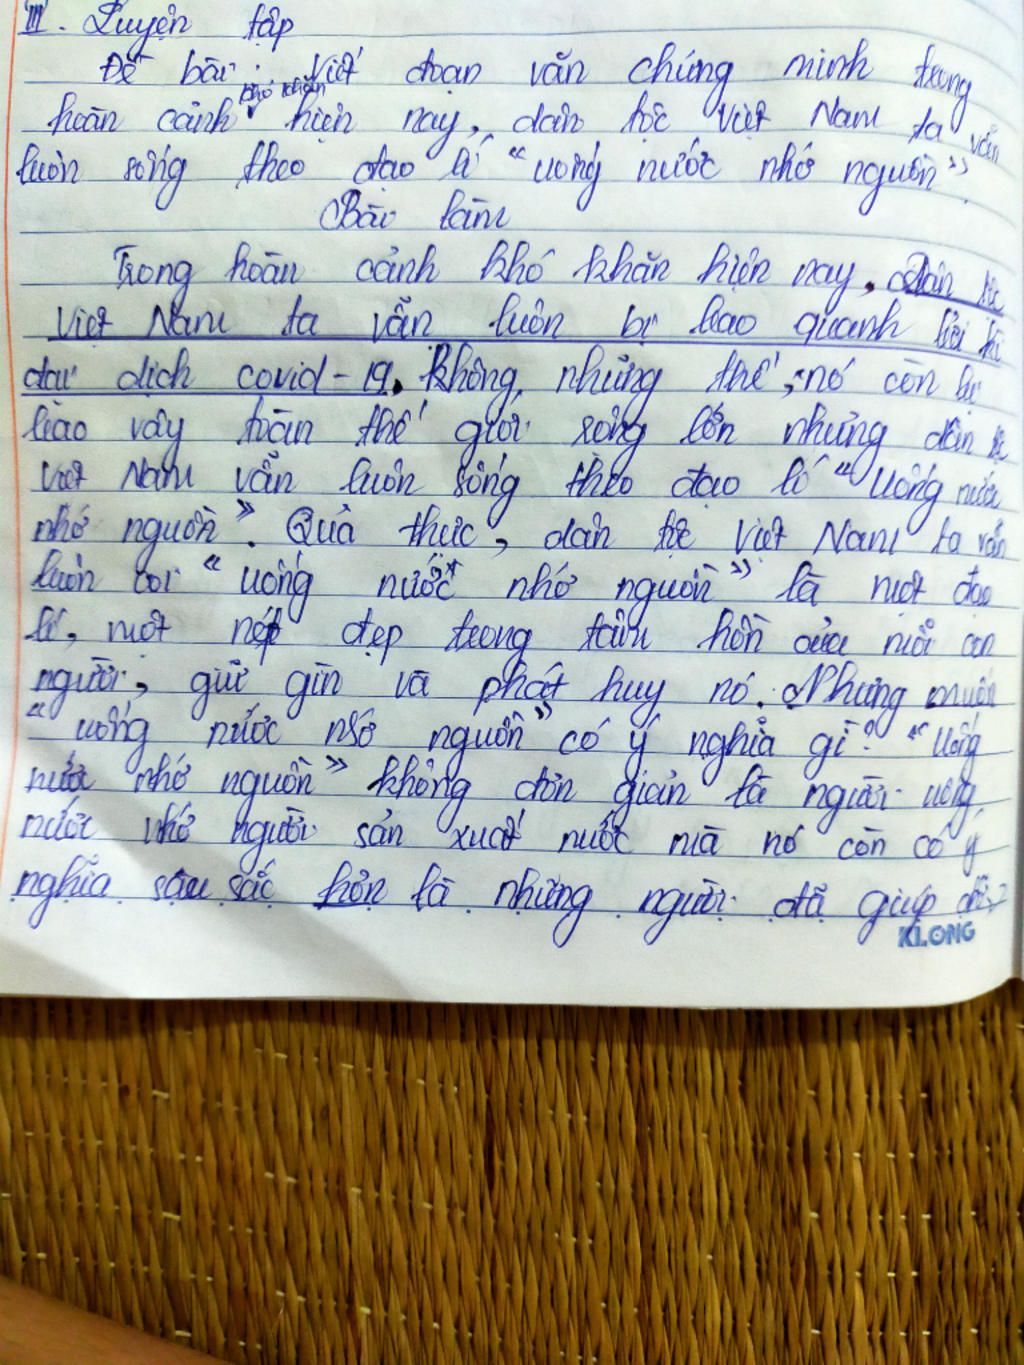 III. Luyện tập
Đề bài: Viết đoạn văn chứng minh trong
khó khăn
hoàn cảnh hiện nay, dân tộc Việt Nam ta vẫn
luôn sống theo đạo lí "uống nước nhớ nguồn"
Bài làm
Trong hoàn cảnh khó khăn hiện nay, dân tộc
Việt Nam ta vẫn luôn bị bao quanh bởi
đại dịch covid-19. Không những thế, nó còn bị
bao vây toàn thế giới rộng lớn nhưng dân tộc
Việt Nam vẫn luôn sống theo đạo lí "Uống nước
nhớ nguồn". Quả thực, dân tộc Việt Nam ta vẫn
luôn coi "uống nước nhớ nguồn" là một đạo
lí, một nét đẹp trong tâm hồn của mỗi con
người, giữ gìn và phát huy nó. Nhưng muốn
"uống nước nhớ nguồn" có ý nghĩa gì? "Uống
nước nhớ nguồn" không đơn giản là người uống
nước nhớ người sản xuất nước mà nó còn có ý
nghĩa sâu sắc hơn là những người đã giúp đỡ
KLONG